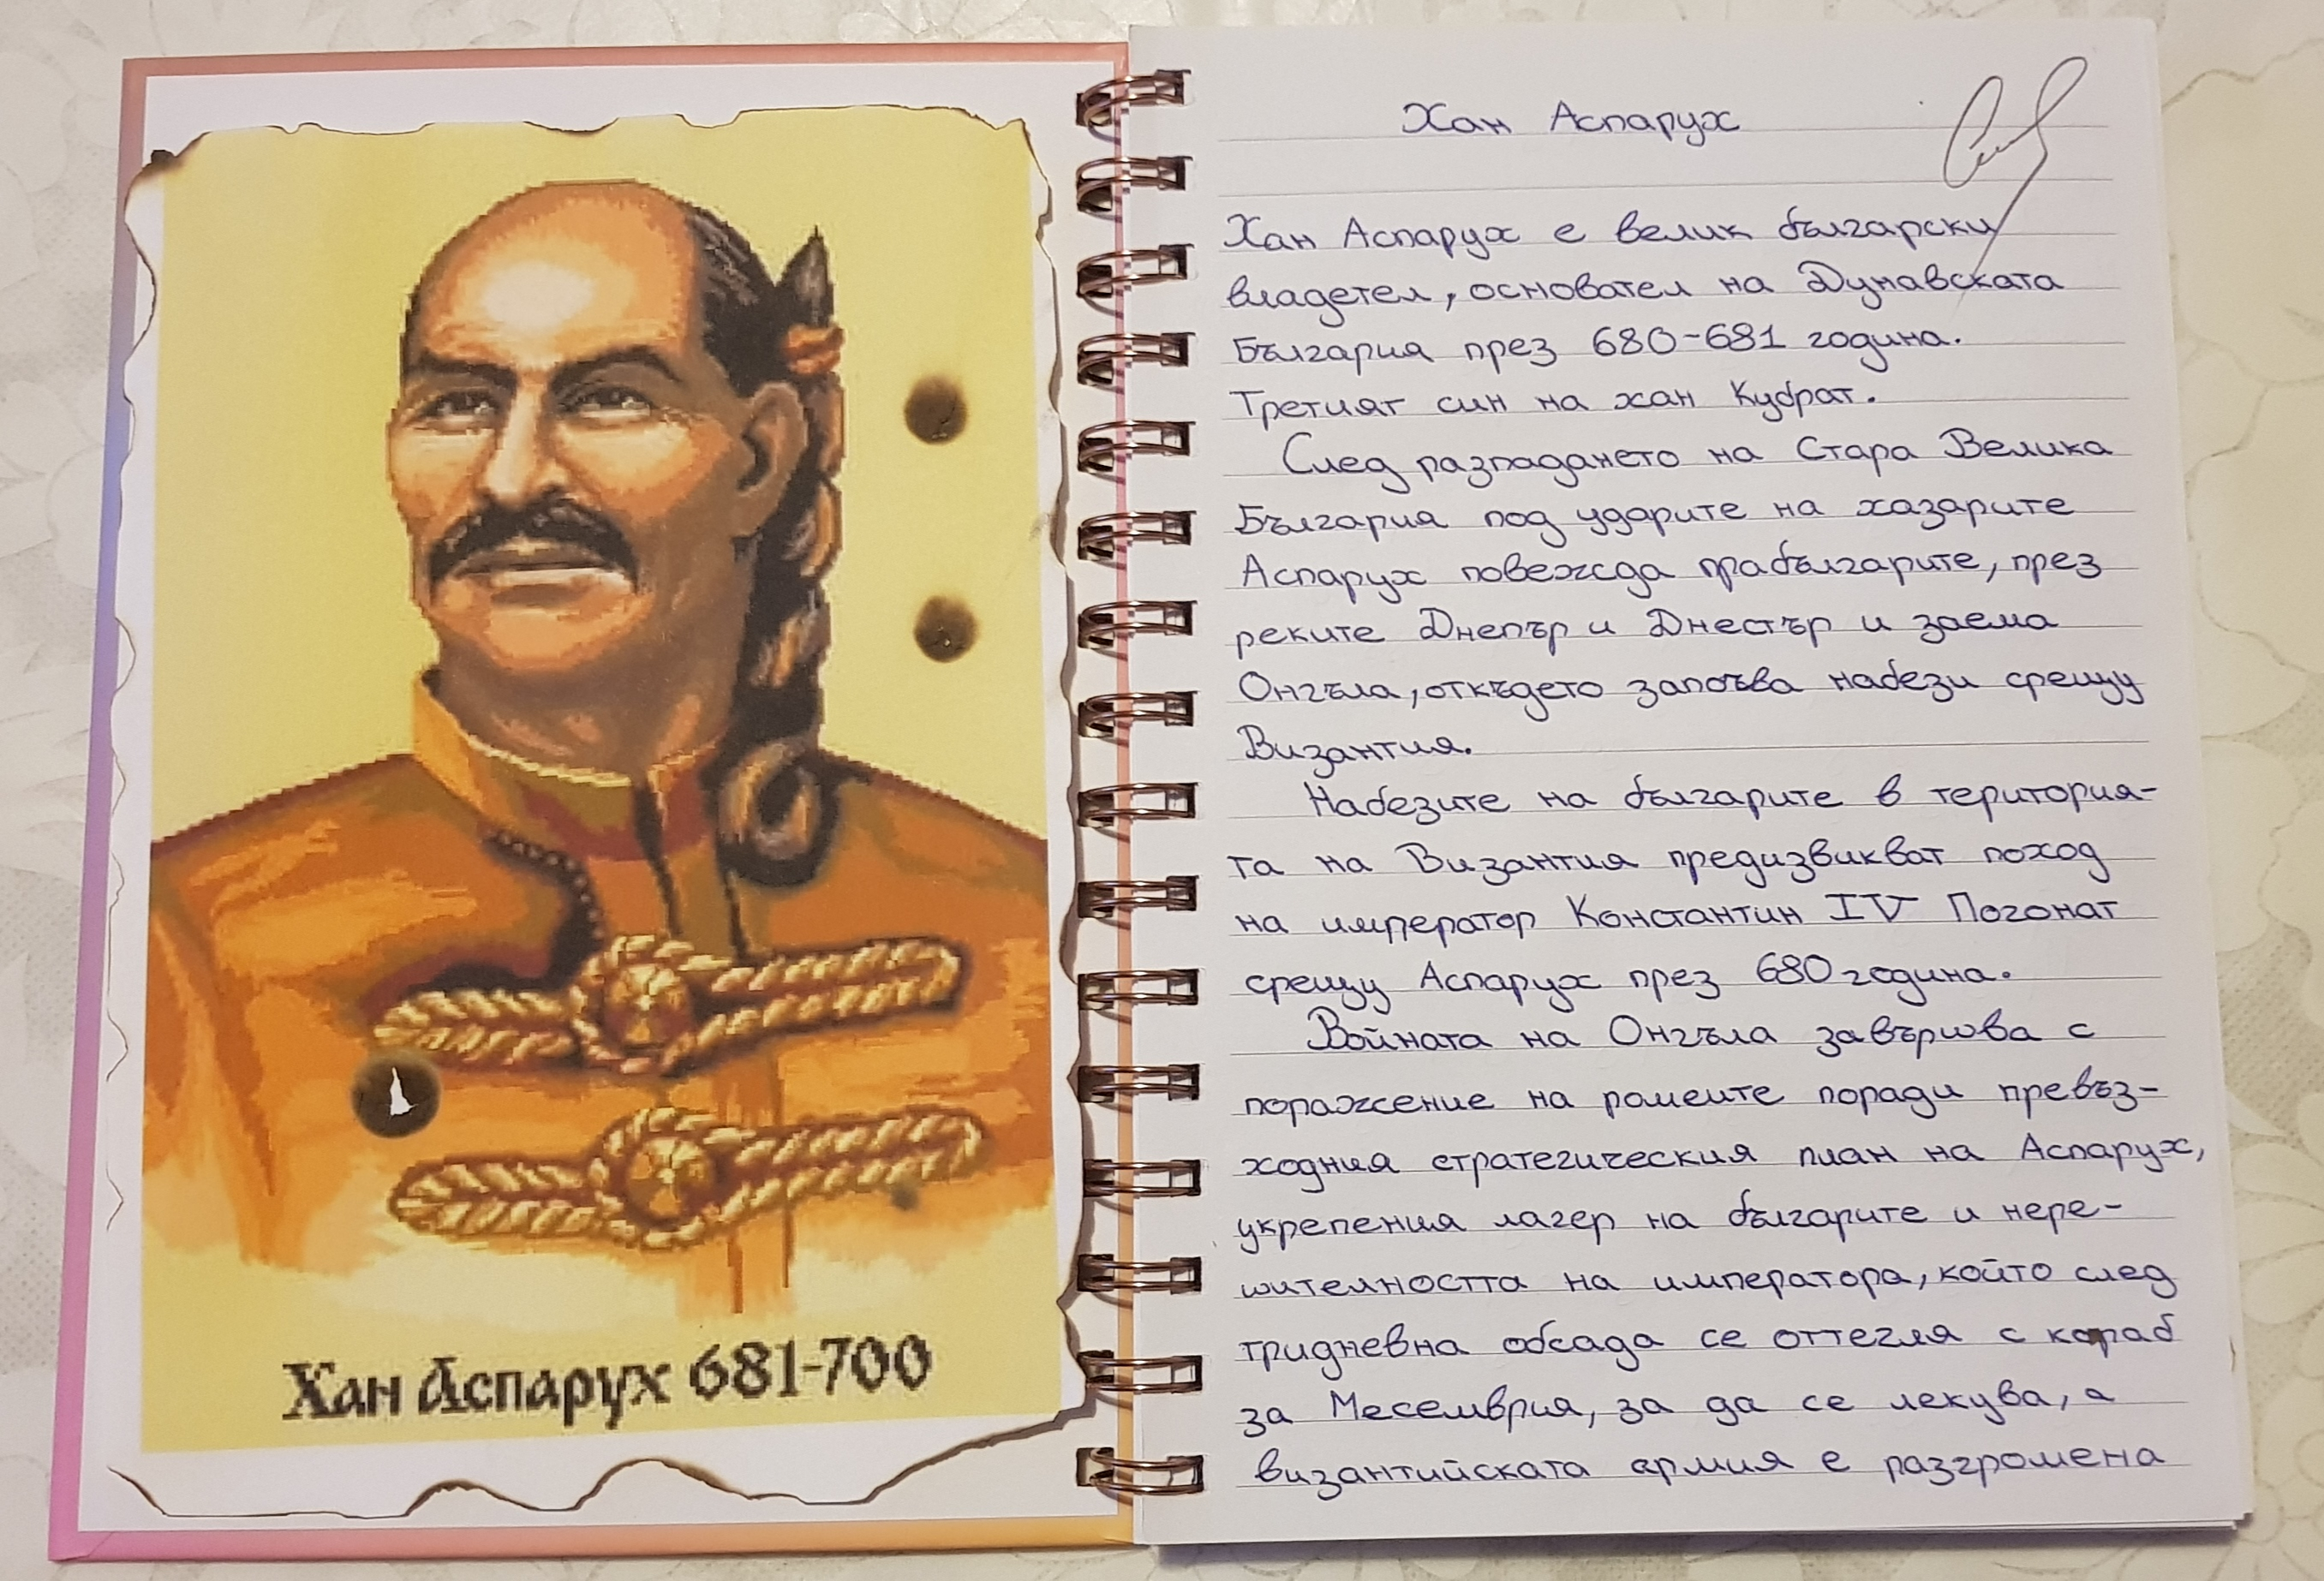 Хан Аспарух 681-700
Хан Аспарух
Хан Аспарух е велик български
владетел, основател на Дунавската
България през 680-681 година.
Третият син на хан Кубрат.
След разпадането на Стара Велика
България под ударите на хазарите
Аспарух повежда прабългарите, през
реките Днепър и Днестър и заема
Онгъла, откъдето започва набези срещу
Византия.
Набезите на българите в територия-
та на Византия предизвикват поход
на император Константин IV Погонат
срещу Аспарух през 680 година.
Войната на Онгъла завършва с
поражение на ромеите поради превъз-
ходния стратегическия план на Аспарух,
укрепения лагер на българите и нере-
шителността на императора, който след
тридневна обсада се оттегля с кораб
за Месемврия, за да се лекува, а
византийската армия е разгромена